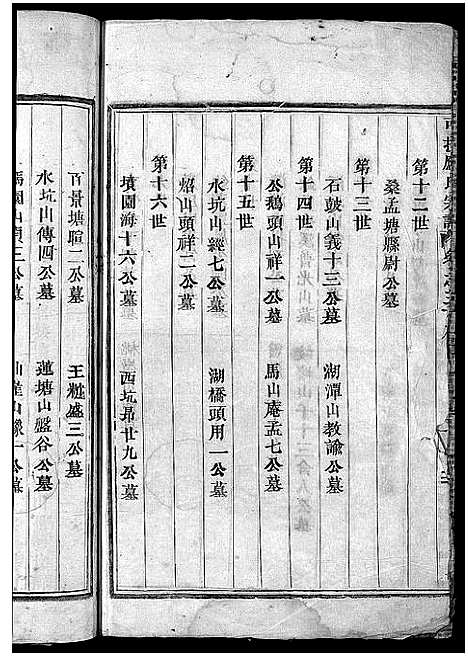 第十二世
桑孟塘縣尉公墓
第十三世
石鼓山義十三公墓 湖潭山教諭公墓
第十四世
公鵝頭山祥一公墓 馬山庵孟七公墓
第十五世
水坑山經七公墓 湖橋頭用一公墓
炤山頭祥二公墓
第十六世
墳園海十六公墓 西坑昂廿九公墓
百景塘暄二公墓 王樾盛三公墓
水坑山傳四公墓 蓮塘山盤谷公墓